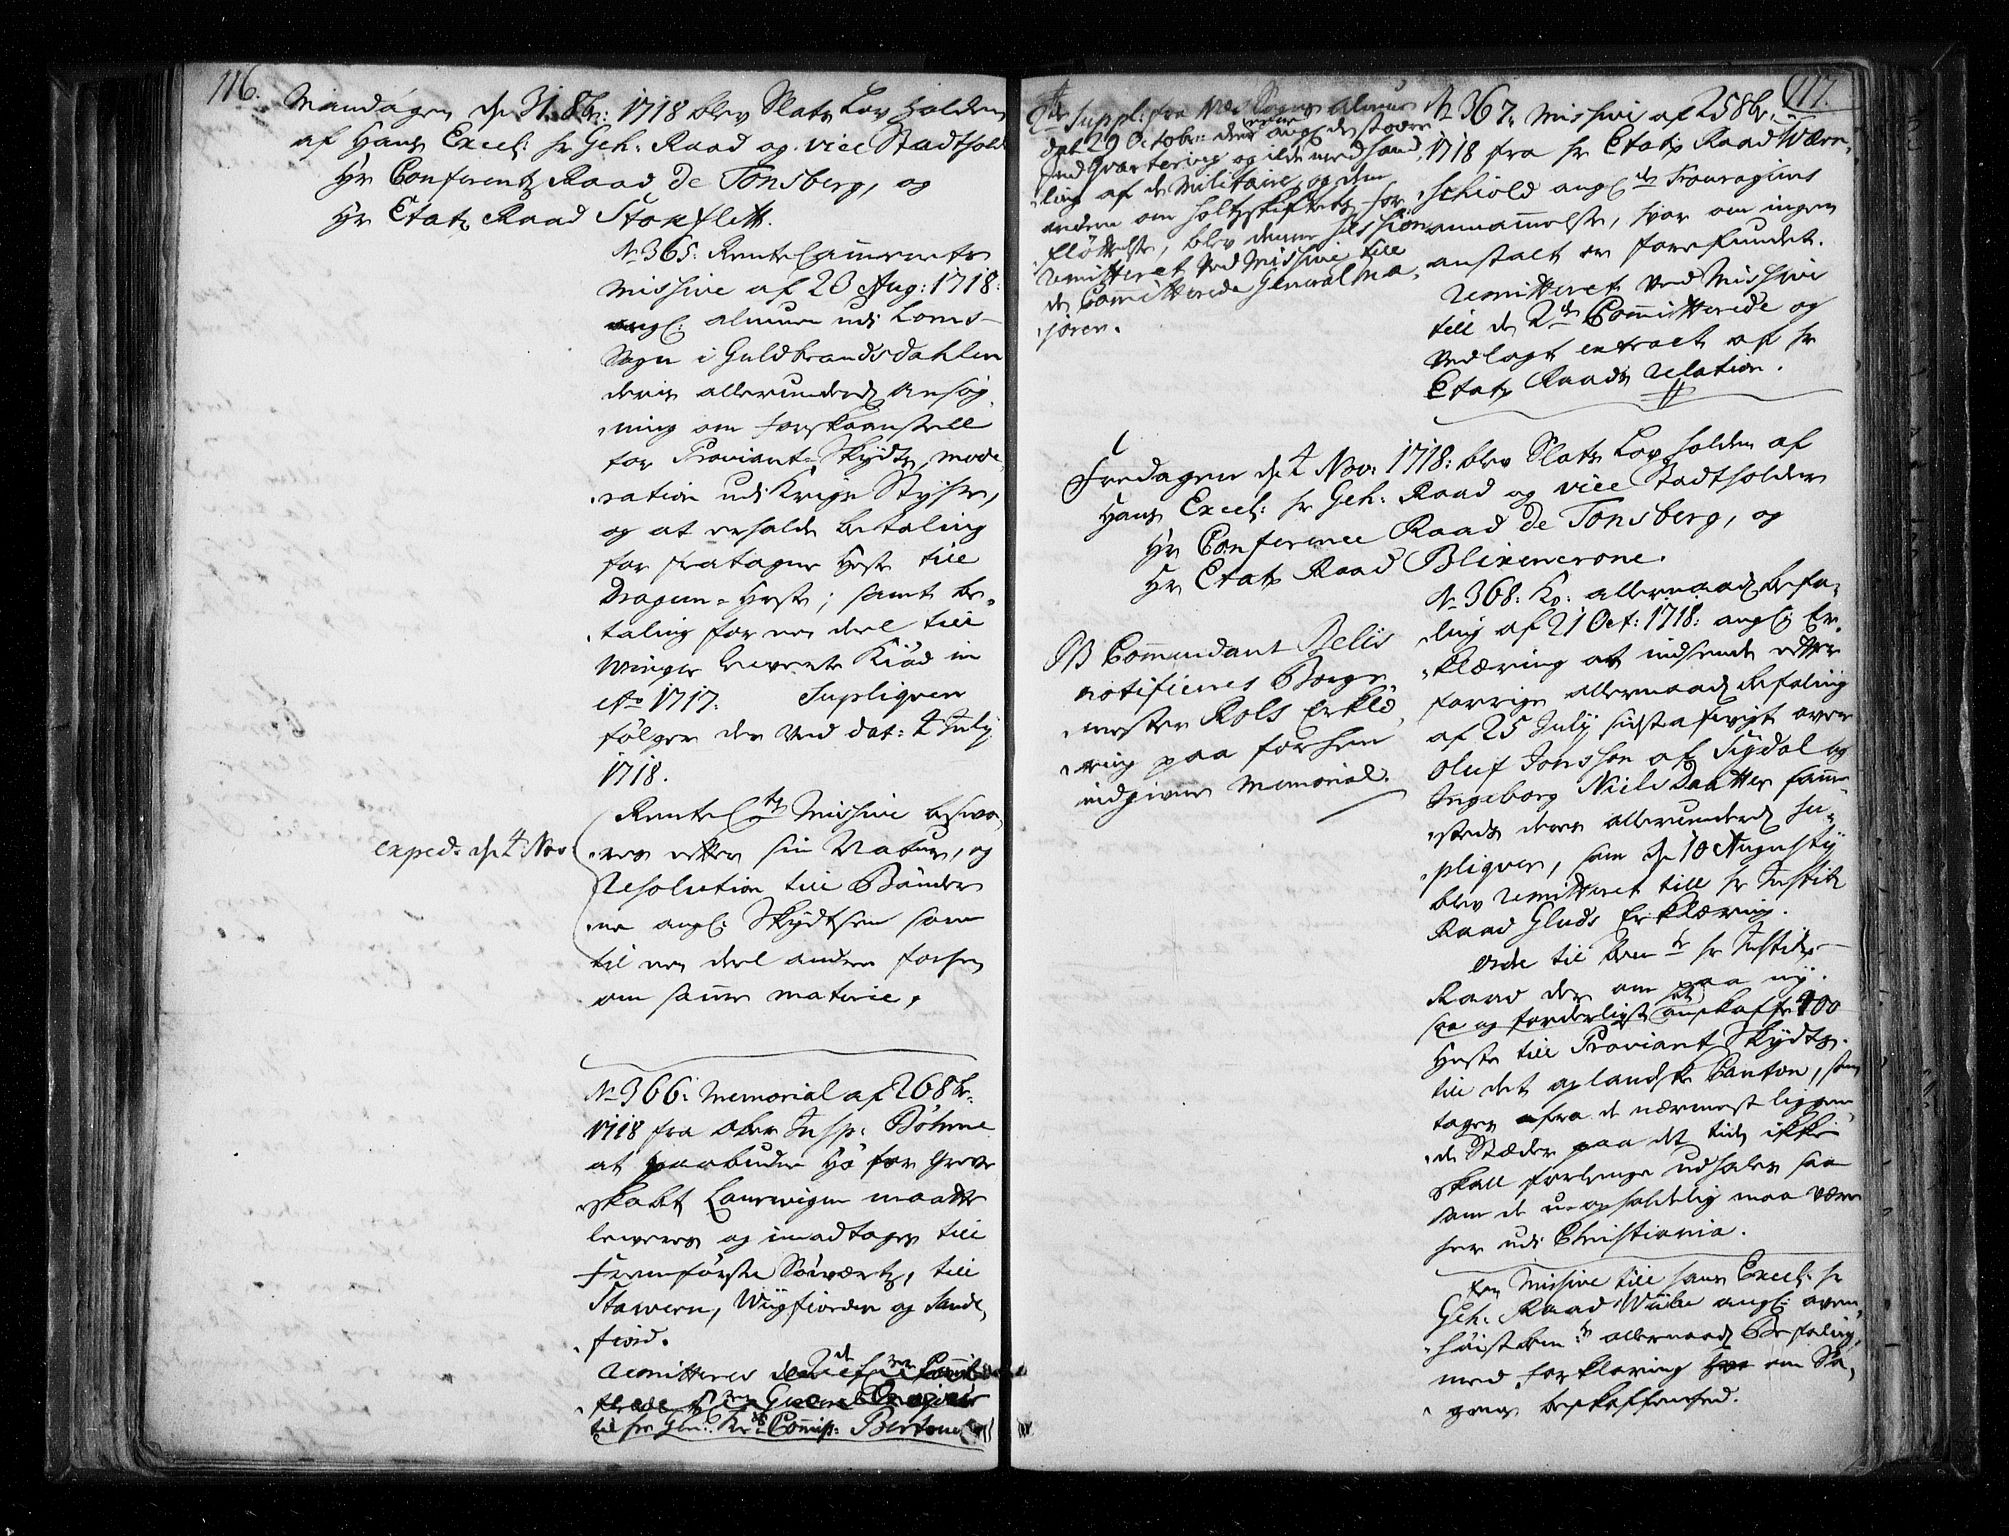 116.
Mandagen d. 31. 8br: 1718 blev Slots Lov Holden
af Hans Excel: Hr Geh: Raad og vice Stadthold
Hr Conferentz Raad De Tonsberg, og
Hr Etatz Raad Stokflett.
No 365: Rente Cammerets
Missive af 20 Aug: 1718:
angl: almuen udi Loms
Sogn i Guldbrandsdahlen
deris allerunderd ansøg
ning om
for Proviant-Skydtz, mode
ration udi Krigs Styhr,
og at erholde betaling
for fratagne Heste till
Dragun-Heste; samt be
taling for en deel till
Winger leverte Kiød in
Ao 1717. Supliqven
følger der ved dat: 4 July
1718.
Rente Missive besva
res efter sin Natur, og
Resolution till Bønder
ne angl: Skydtsen som
til en deel andre forhen
om samme materie,
exped: d. 4 Nov:
No 366: Memorial af 26 8br:
1718 fra Ober Insp: Bøhme
at paabuden Hø for Grev
skabet Laurwigen maatte
leveres og imodtages till
Fremførsel Søeværtz, till
Stavern, Wiigfiorden og Sande
fiord.
Remitteres
til hr Gen: Kr: Commiss:
117.
Suppl: fra Næs Sogns almue
dat 29 Octobr: den angl: de store
Indqvartering og ilde medhand
ling af de Militaire, og den
anden om holtzskiftetz for
fløttelse, blev denne Session
remitteret ved Missive till
de Comitterede General Ma
jorer.
No 367: Missive af 25 8br:
1718 fra hr Etatz Raad Wærn
schiold angl: Fouragiens
annammelse, hvor om ingen
anstalt er forefundet.
Remitteret ved Missive
till de 2de Committerede og
vedlagt extract af hr
Etatz Raads relation.
Fredagen d. 4 Nov: 1718: blev Slots Lov holden af
Hans Excel: hr Geh: Raad og vice Stadtholder
Hr Conference Raad De Tonsberg, og
Hr Etatz Raad Blixencrone.
NB Commendant
notificeres Borge
mester Rols Erklæ
ring paa forhen
indgivne Memorial.
No 368: Ko: allernaad: Befa
ling af 21 Oct: 1718: angl: Er
klæring at indsende efter
forrige allernaad: Befaling
af 25 July sidst afvigt over
Oluf Jonssøn af Sigdal og
Ingeborg Nielsdaatter samme
steds deres allerunderd: Su
pliqver, som d. 10 Augusty
blev remitteret till hr Justitz
Raad Gluds Erklæring.
Ordre til hr Justitz
Raad der om paa ny.
saa og forderligst anskaffe 400
Heste till Proviant Skydtz
till det oplandske Canton, som
tages fra de nærmest liggen
de Stæder paa det tiden ikke
skall forlenge udhales saa
som de uopholdelig maa være
her udi Christiania.
En Missive till hans Excel: hr
Geh: Raad Wibe angl: oven
høistbem: allernaad: Befaling,
med forklaring om Sa
gens beskaffenhed.